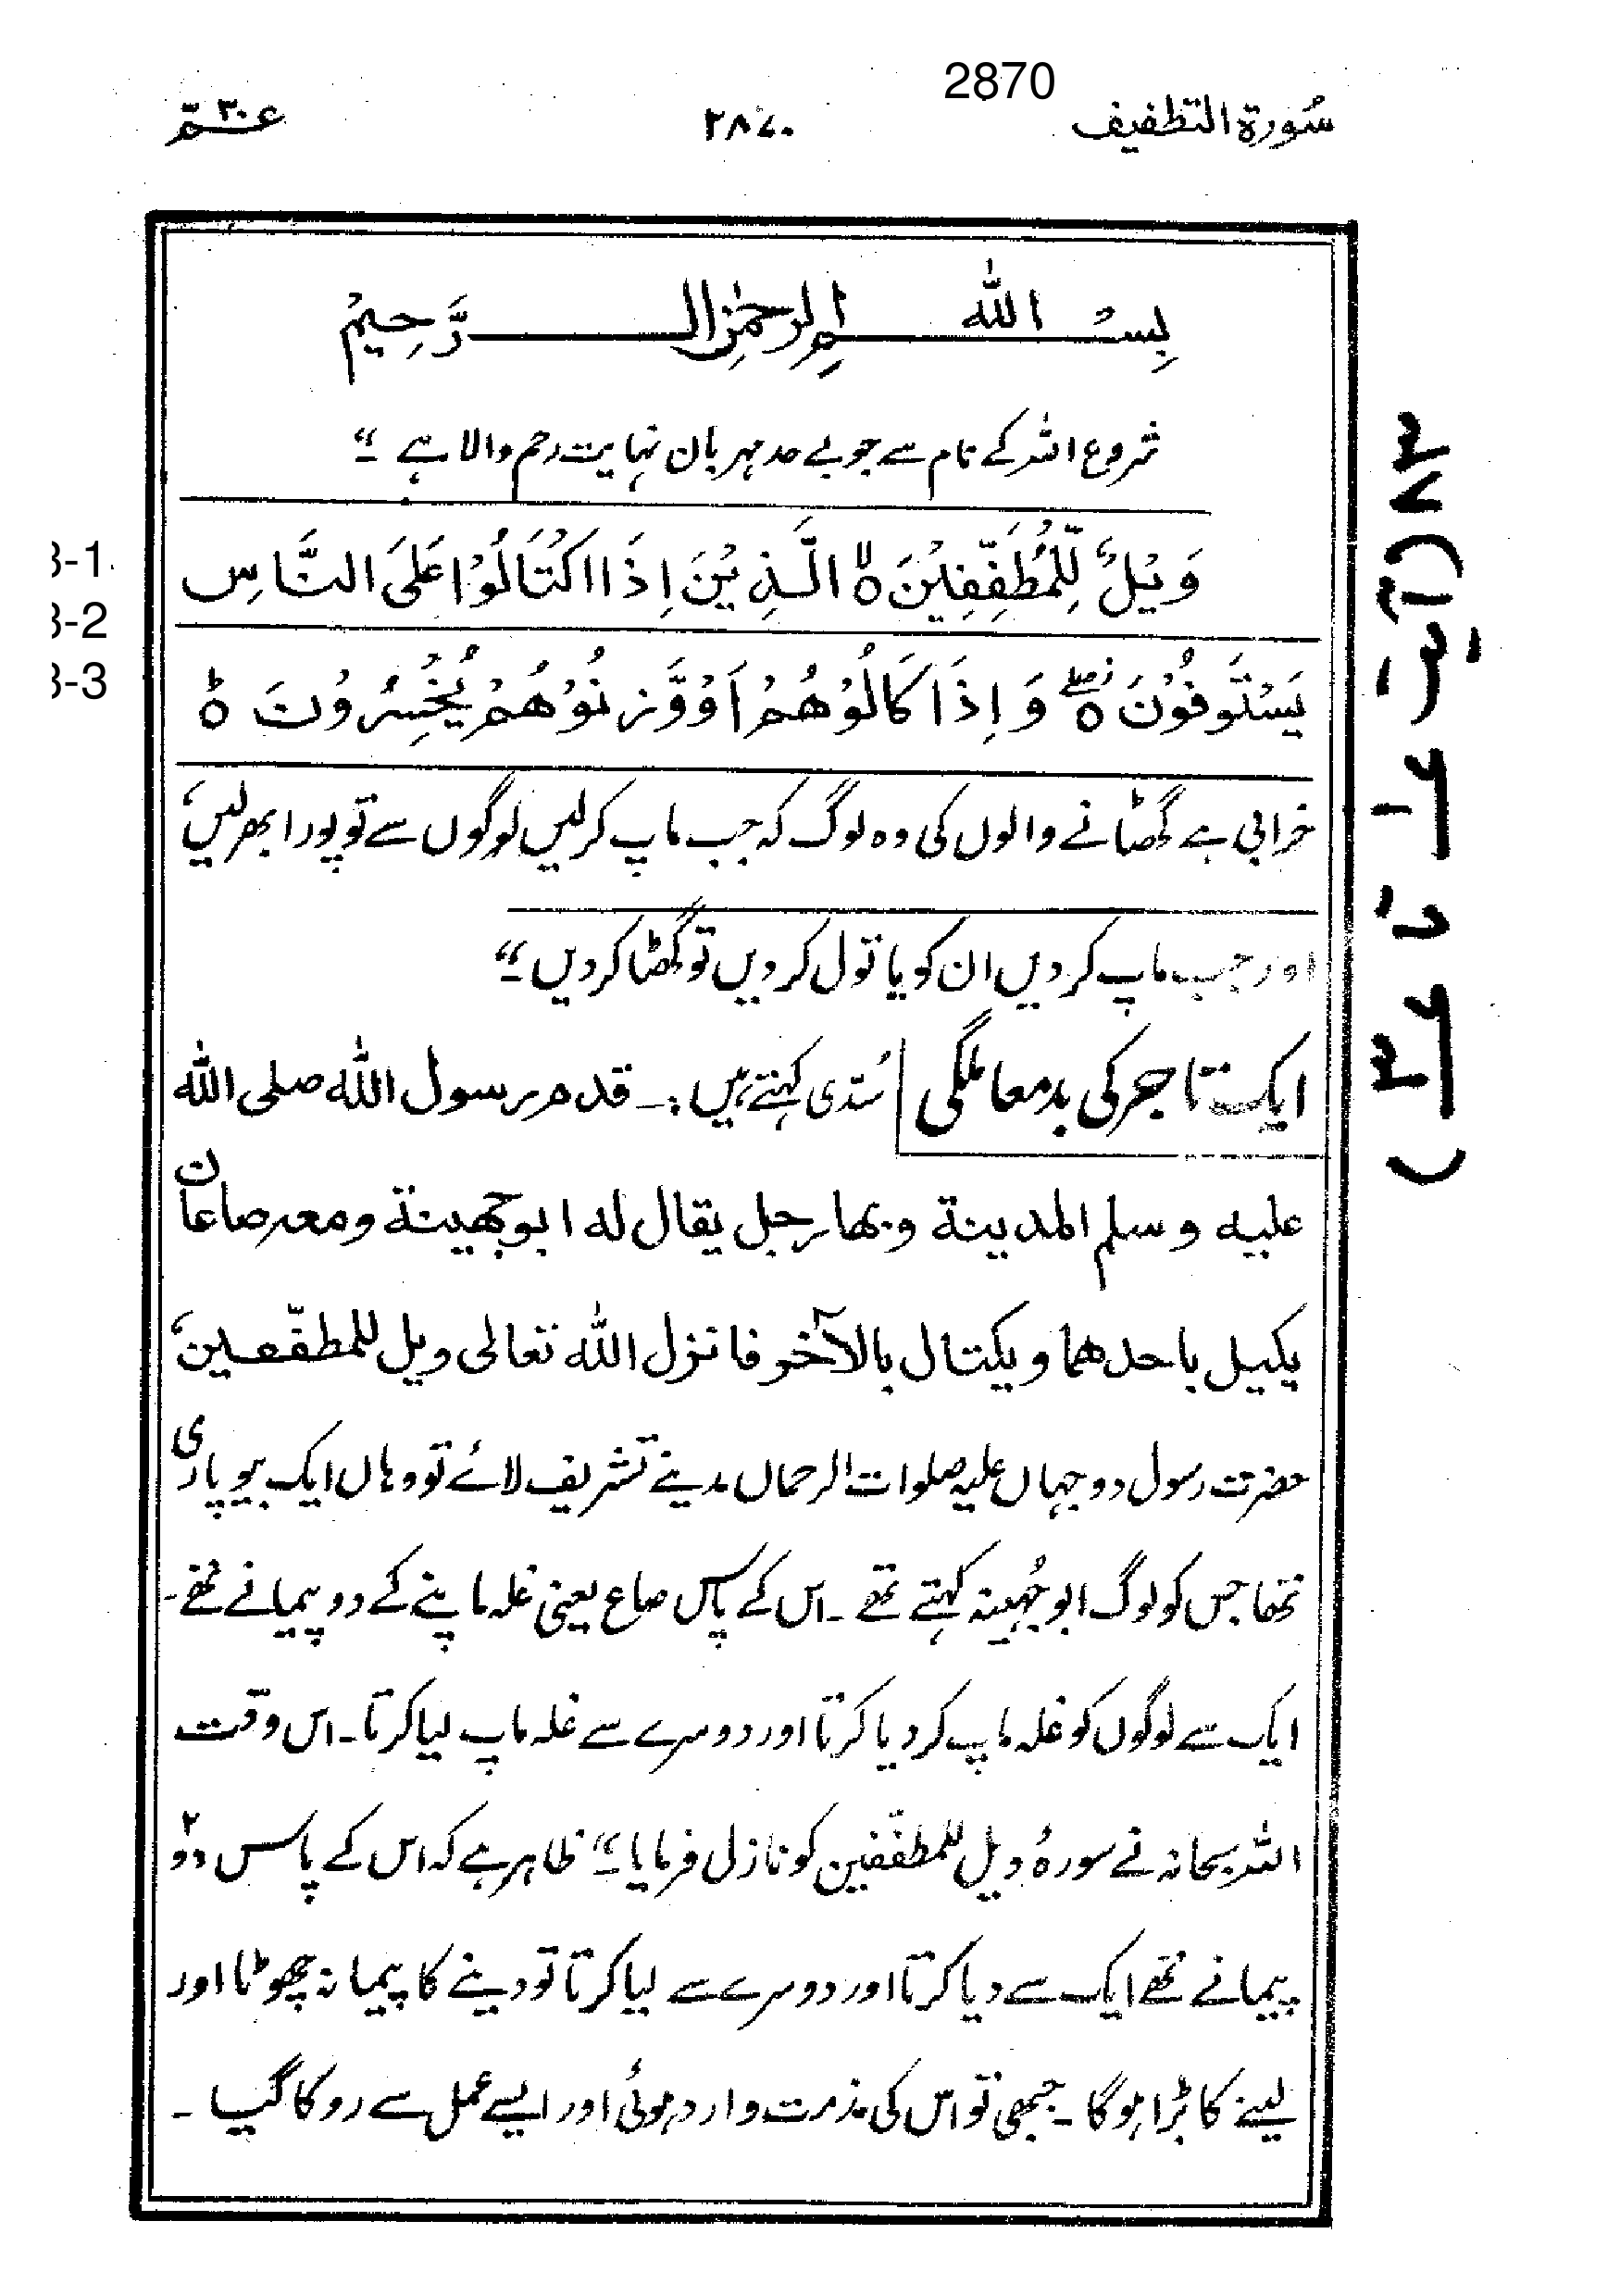 2870
سُورة التطفيف ۲۸۷۰ عمّ ۳۰
بِسْــــمِ اللّٰهِ الرَّحْمٰنِ الــــرَّحِيْمِ
شروع اللہ کے نام سے جو بے حد مہربان نہایت رحم والا ہے ۔“
3-1
وَيْلٌ لِّلْمُطَفِّفِيْنَ ۙ الَّذِيْنَ اِذَا اكْتَالُوْا عَلَى النَّاسِ
3-2
يَسْتَوْفُوْنَ ۖ وَ اِذَا كَالُوْهُمْ اَوْ وَّزَنُوْهُمْ يُخْسِرُوْنَ ۃ
3-3
خرابی ہے گھٹانے والوں کی وہ لوگ کہ جب ماپ کر لیں لوگوں سے تو پورا بھر لیں
اور جب ماپ کر دیں ان کو یا تول کر دیں تو گھٹا کر دیں ۔“
ایک تاجر کی بدمعاملگی سُدّی کہتے ہیں :۔ قدم رسول اللّٰه صلی اللّٰه
علیه و سلم المدینة و بها رجل یقال له ابو جھینة و معه صاعان
یکیل باحدهما و یکتال بالآخر فانزل اللّٰه تعالی ویل للمطفّفین،
حضرت رسول دو جہاں علیہ صلوات الرحماں مدینے تشریف لائے تو وہاں ایک بیوپاری
تھا جس کو لوگ ابو جُہینہ کہتے تھے ۔ اس کے پاس صاع یعنی غلہ ماپنے کے دو پیمانے تھے ۔
ایک سے لوگوں کو غلہ ماپ کر دیا کرتا اور دوسرے سے غلہ ماپ لیا کرتا ۔ اس وقت
اللہ سبحانہ نے سورۂ ویل للمطفّفین کو نازل فرمایا ۔“ ظاہر ہے کہ اس کے پاس دو۲
پیمانے تھے ایک سے دیا کرتا اور دوسرے سے لیا کرتا تو دینے کا پیمانہ چھوٹا اور
لینے کا بڑا ہوگا ۔ جبھی تو اس کی مذمت وارد ہوئی اور ایسے عمل سے روکا گیا ۔
۸۳ (آیت ۱ تا ۳)